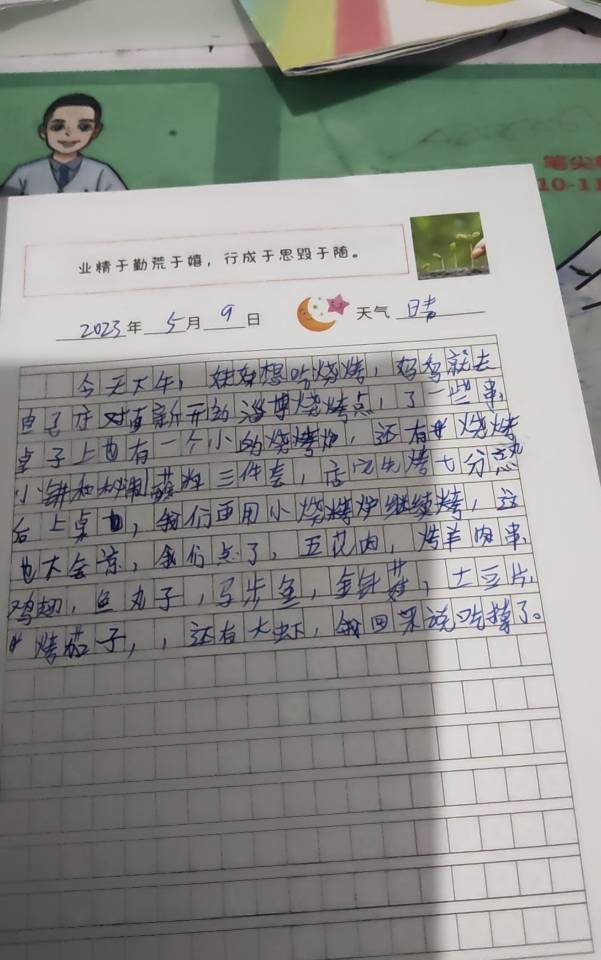 笔尖
10-11
业精于勤荒于嬉，行成于思毁于随。
2023年 5月 9日 天气 晴
今天下午，妹妹想吃烧烤，妈妈就去
电子厅对直新开的淄博烧烤点，了一些串，
桌子上也有一个小的烧烤炉，还有烧烤
小饼和蘸料三件套，店它先烤七分熟
后上桌，我们再用小烧烤炉继续烤，这
也太会凉，我们点了，五花肉，烤羊肉串，
鸡翅，鱼丸子，马步鱼，金针菇，土豆片，
烤茄子，，还有大虾，我回来说吃撑了。